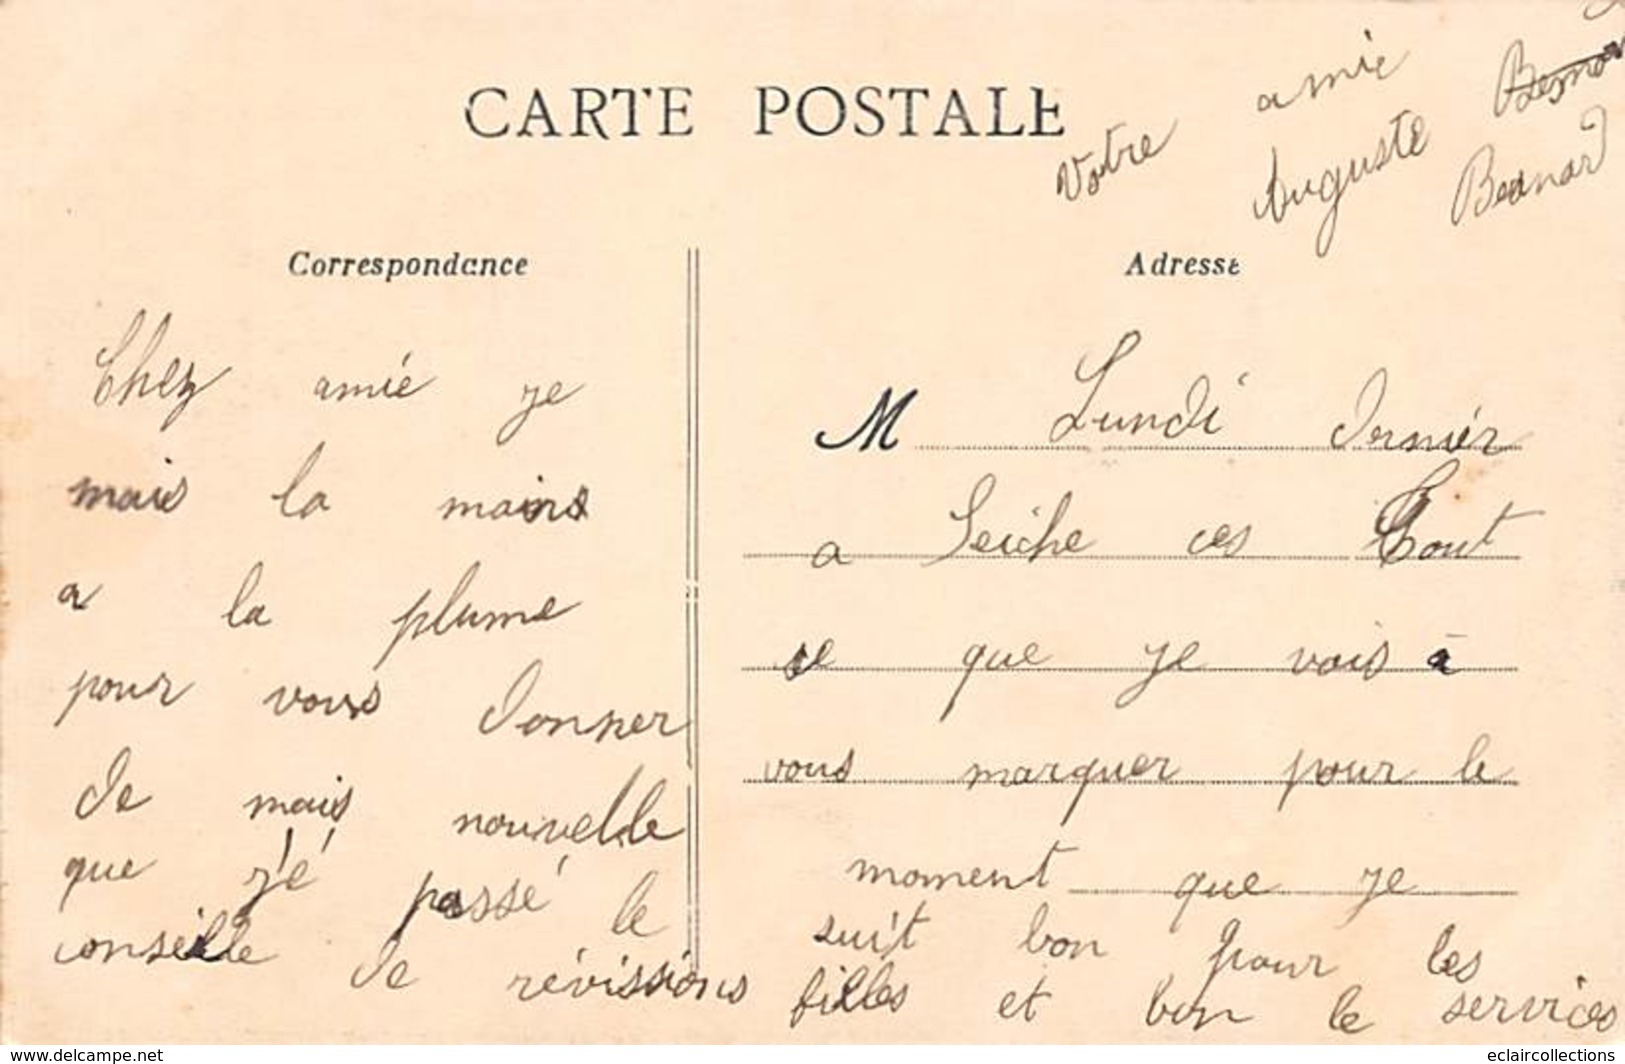 CARTE POSTALE
Votre amie
Auguste
Besnard
Correspondance
Adresse
Chez amie je
mais la mains
a la plume
pour vous donner
de mais nouvelle
que j'é passé le
conseille de révissions
M Lundi dernièr
a Seiche ces tout
se que je vois à
vous marquer pour le
moment que je
suit bon pour les
filles et bon le services
eclaircollections
www.delcampe.net